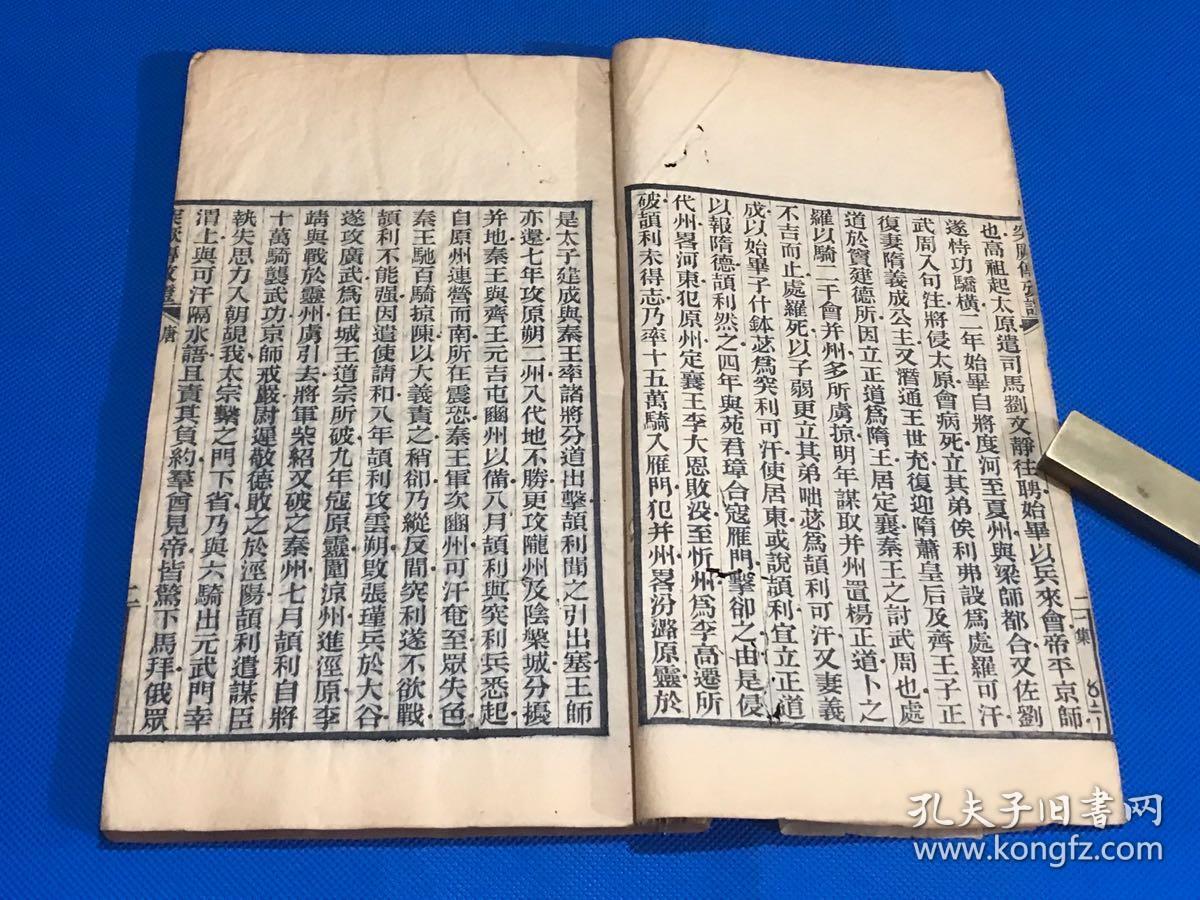 也高祖起太原遣司馬劉文靜往聘始畢以兵來會帝平京師
遂恃功驕橫二年始畢自將度河至夏州與梁師都合又佐劉
武周入句注將侵太原會病死立其弟俟利弗設爲處羅可汗
復妻隋義成公主又潛通王世充復迎隋蕭皇后及齊王子正
道於竇建德所因立正道爲隋王居定襄秦王之討武周也處
羅以騎二千會并州多所虜掠明年謀取并州置楊正道卜之
不吉而止處羅死以子弱更立其弟咄苾爲頡利可汗又妻義
成以始畢子什鉢苾爲突利可汗使居東或說頡利宜立正道
以報隋德頡利然之四年與苑君璋合寇雁門擊卻之由是侵
代州畧河東犯原州定襄王李大恩敗沒至忻州爲李高遷所
破頡利未得志乃率十五萬騎入雁門犯并州畧汾潞原靈於
是太子建成與秦王率諸將分道出擊頡利聞之引出塞王師
亦還七年攻原朔二州入代地不勝更攻隴州及陰槃城分擾
并地秦王與齊王元吉屯豳州以備八月頡利與突利兵悉起
自原州連營而南所在震恐秦王軍次豳州可汗奄至眾失色
秦王馳百騎掠陳以大義責之稍卻乃縱反間突利遂不欲戰
頡利不能强因遣使請和八年頡利攻雲朔敗張瑾兵於大谷
遂攻廣武爲任城王道宗所破九年寇原靈圍涼州進涇原李
靖與戰於靈州虜引去將軍柴紹又破之秦州七月頡利自將
十萬騎襲武功京師戒嚴尉遲敬德敗之於涇陽頡利遣謀臣
執失思力入朝覘我太宗縶之門下省乃與六騎出元武門幸
渭上與可汗隔水語且責其負約羣酋見帝皆驚下馬拜俄眾
唐
孔夫子旧书网
www.kongfz.com